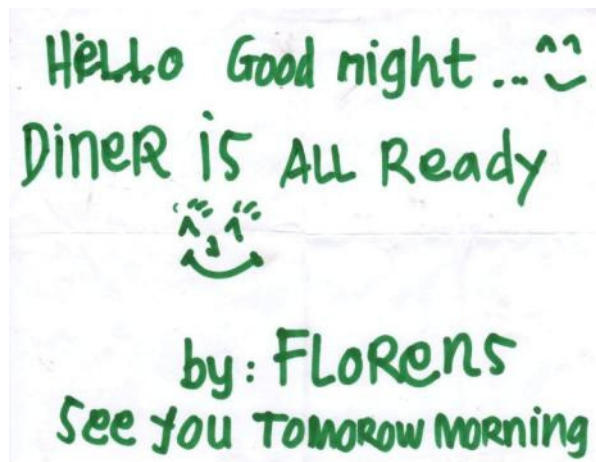 Hello Good night...
Diner is All Ready
by: Florens
See you Tomorow Morning